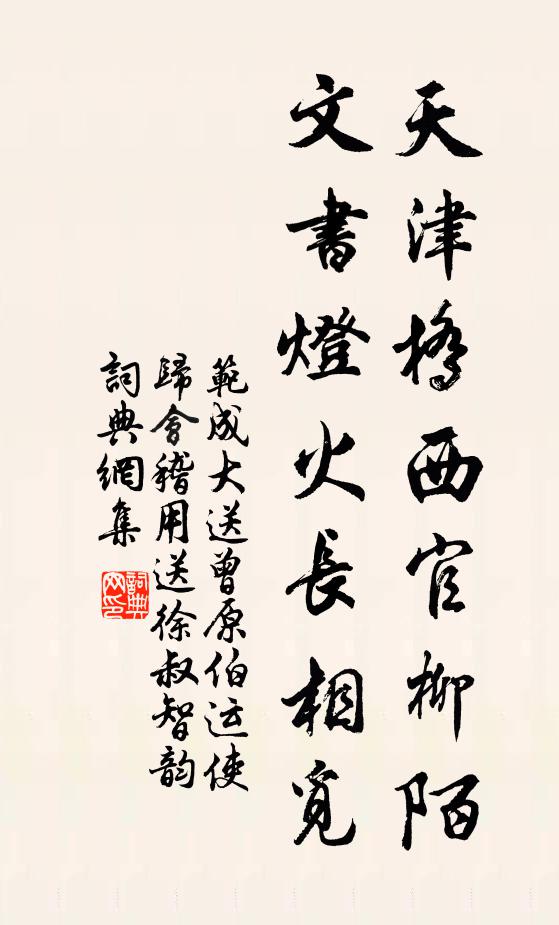 天津橋西官柳陌
文書燈火長相覓
範成大送曾原伯运使
歸會稽用送徐叔智韵
詞典網集
詞典
网印